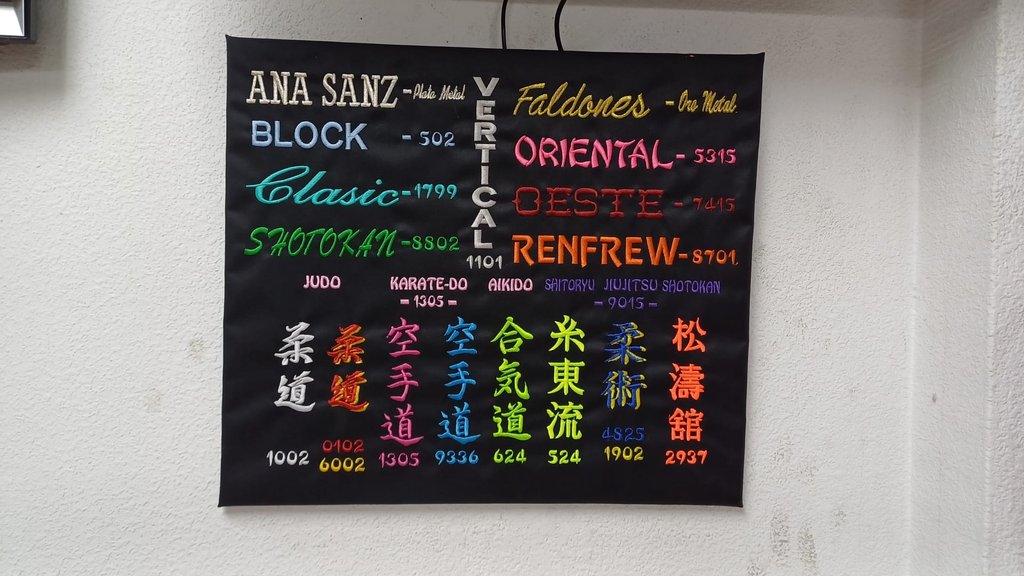 ANA SANZ - Plata Metal
BLOCK - 502
Clasic - 1799
SHOTOKAN - 8802
VERTICAL
1101
Faldones - Oro Metal
ORIENTAL - 5315
OESTE - 7415
RENFREW - 8701
JUDO KARATE-DO AIKIDO SAITORYU JIUJITSU SHOTOKAN
- 1305 - - 9015 -
柔道
柔道
空手道
空手道
合気道
糸東流
柔術
松濤舘
1002 0102 1305 9336 624 524 4825 2937
6002 1902